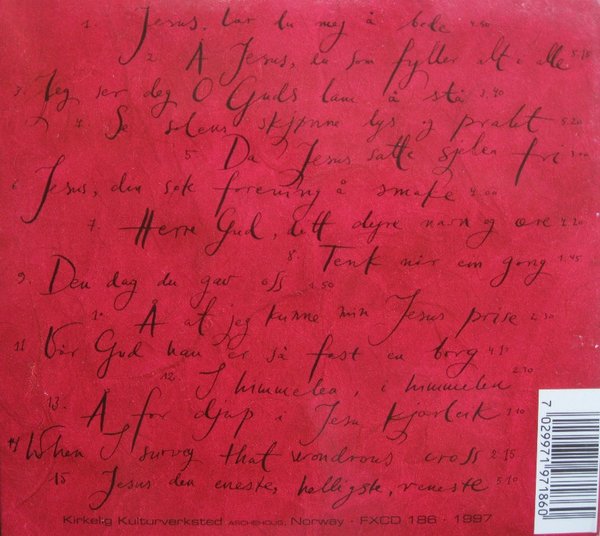 1. Jesus, lær du meg å bede 4.50
2. Å Jesus, du som fyller alt i alle 5.10
3. Jeg ser deg O Guds lam å stå 3.40
4. Se solens skjønne lys og prakt 5.20
5. Da Jesus satte sjelen fri
6 Jesus, din søte forening å smake 4.00
7. Herre Gud, ditt dyre navn og ære 4.20
8. Tenk når em gong 1.45
9. Den dag du gav oss 4.50
10. Å at jeg kunne min Jesus prise 2.30
11 Vår Gud han er så fast en borg
12. I himmelen, i himmelen 2.10
13. Å for djup Jesu kjærleik
14 When I survey that wondrous cross 2.15
15 Jesus den eneste, helligste, reneste 5.10
Kirkelig Kulturverksted ASCHEHOUG, Norway · FXCD 186 · 1997
7 029971 971860